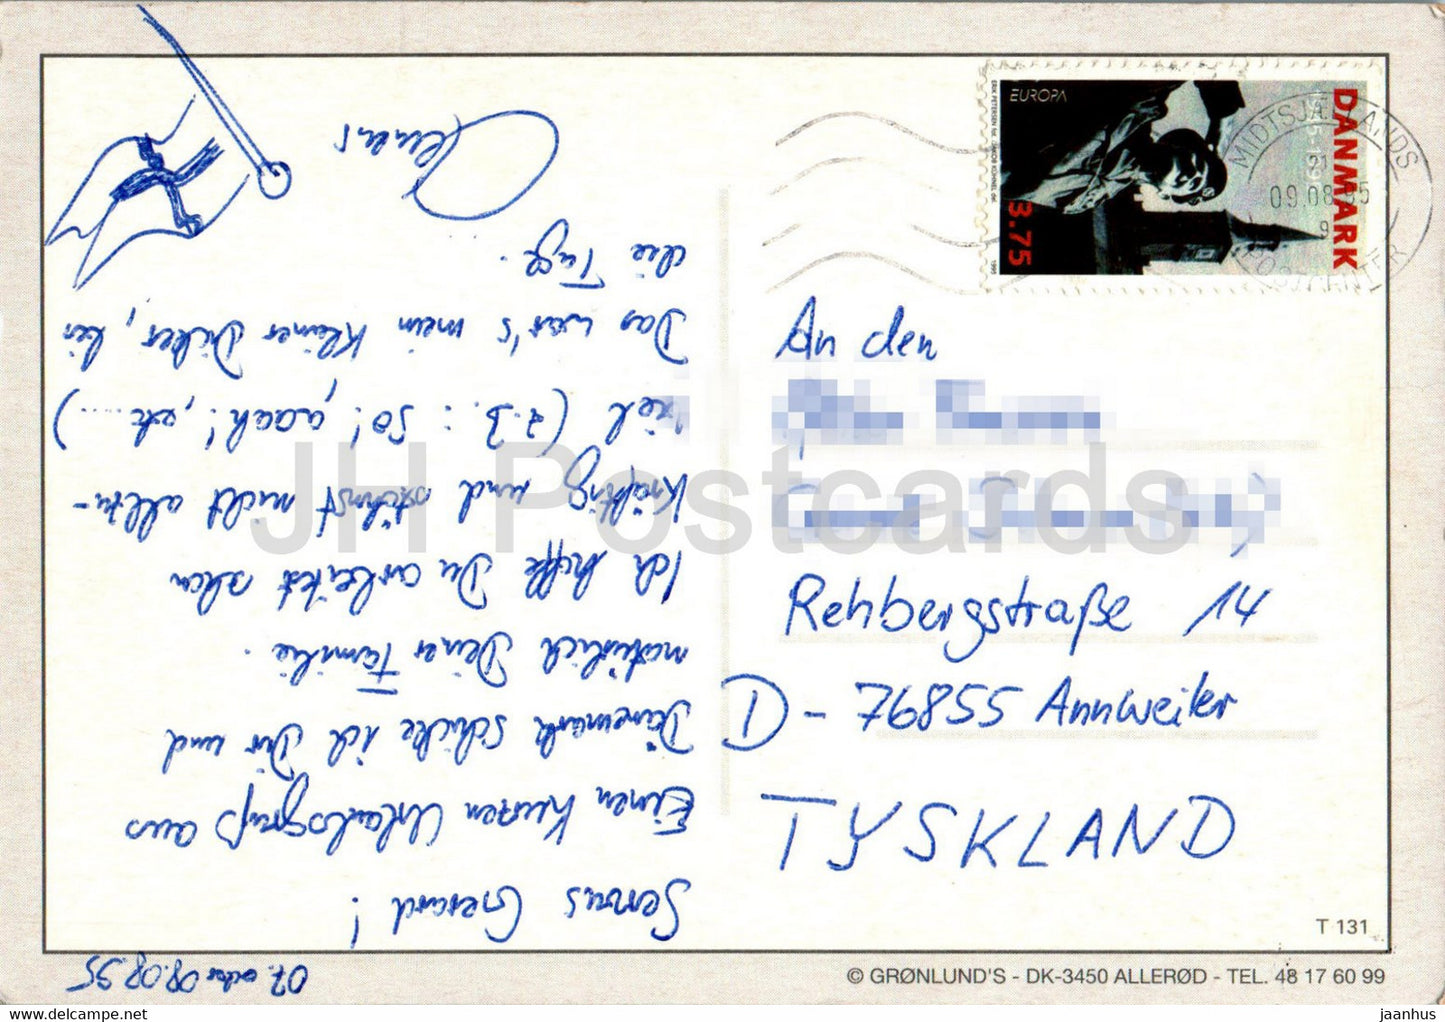 07. oder 08.08.95
Servus Gerard!
Einen kurzen Urlaubsgruß aus
Dänemark schicke ich Dir und
natürlich Deiner Familie.
Ich hoffe Du arbeitest schon
kräftig und stöhnst nicht allzu-
viel (z.B.: SO!, aach!, etc....)
Das war's mein kleiner Dicker, bis
die Tage.
EUROPA
DANMARK
3.75
1995
MIDTSJÆLLANDS
21
09.08.95
9
POSTCENTER
An den
Rehbergstraße 14
D - 76855 Annweiler
TYSKLAND
T 131
© GRØNLUND'S - DK-3450 ALLERØD - TEL. 48 17 60 99
JH Postcards
www.delcampe.net
jaanhus